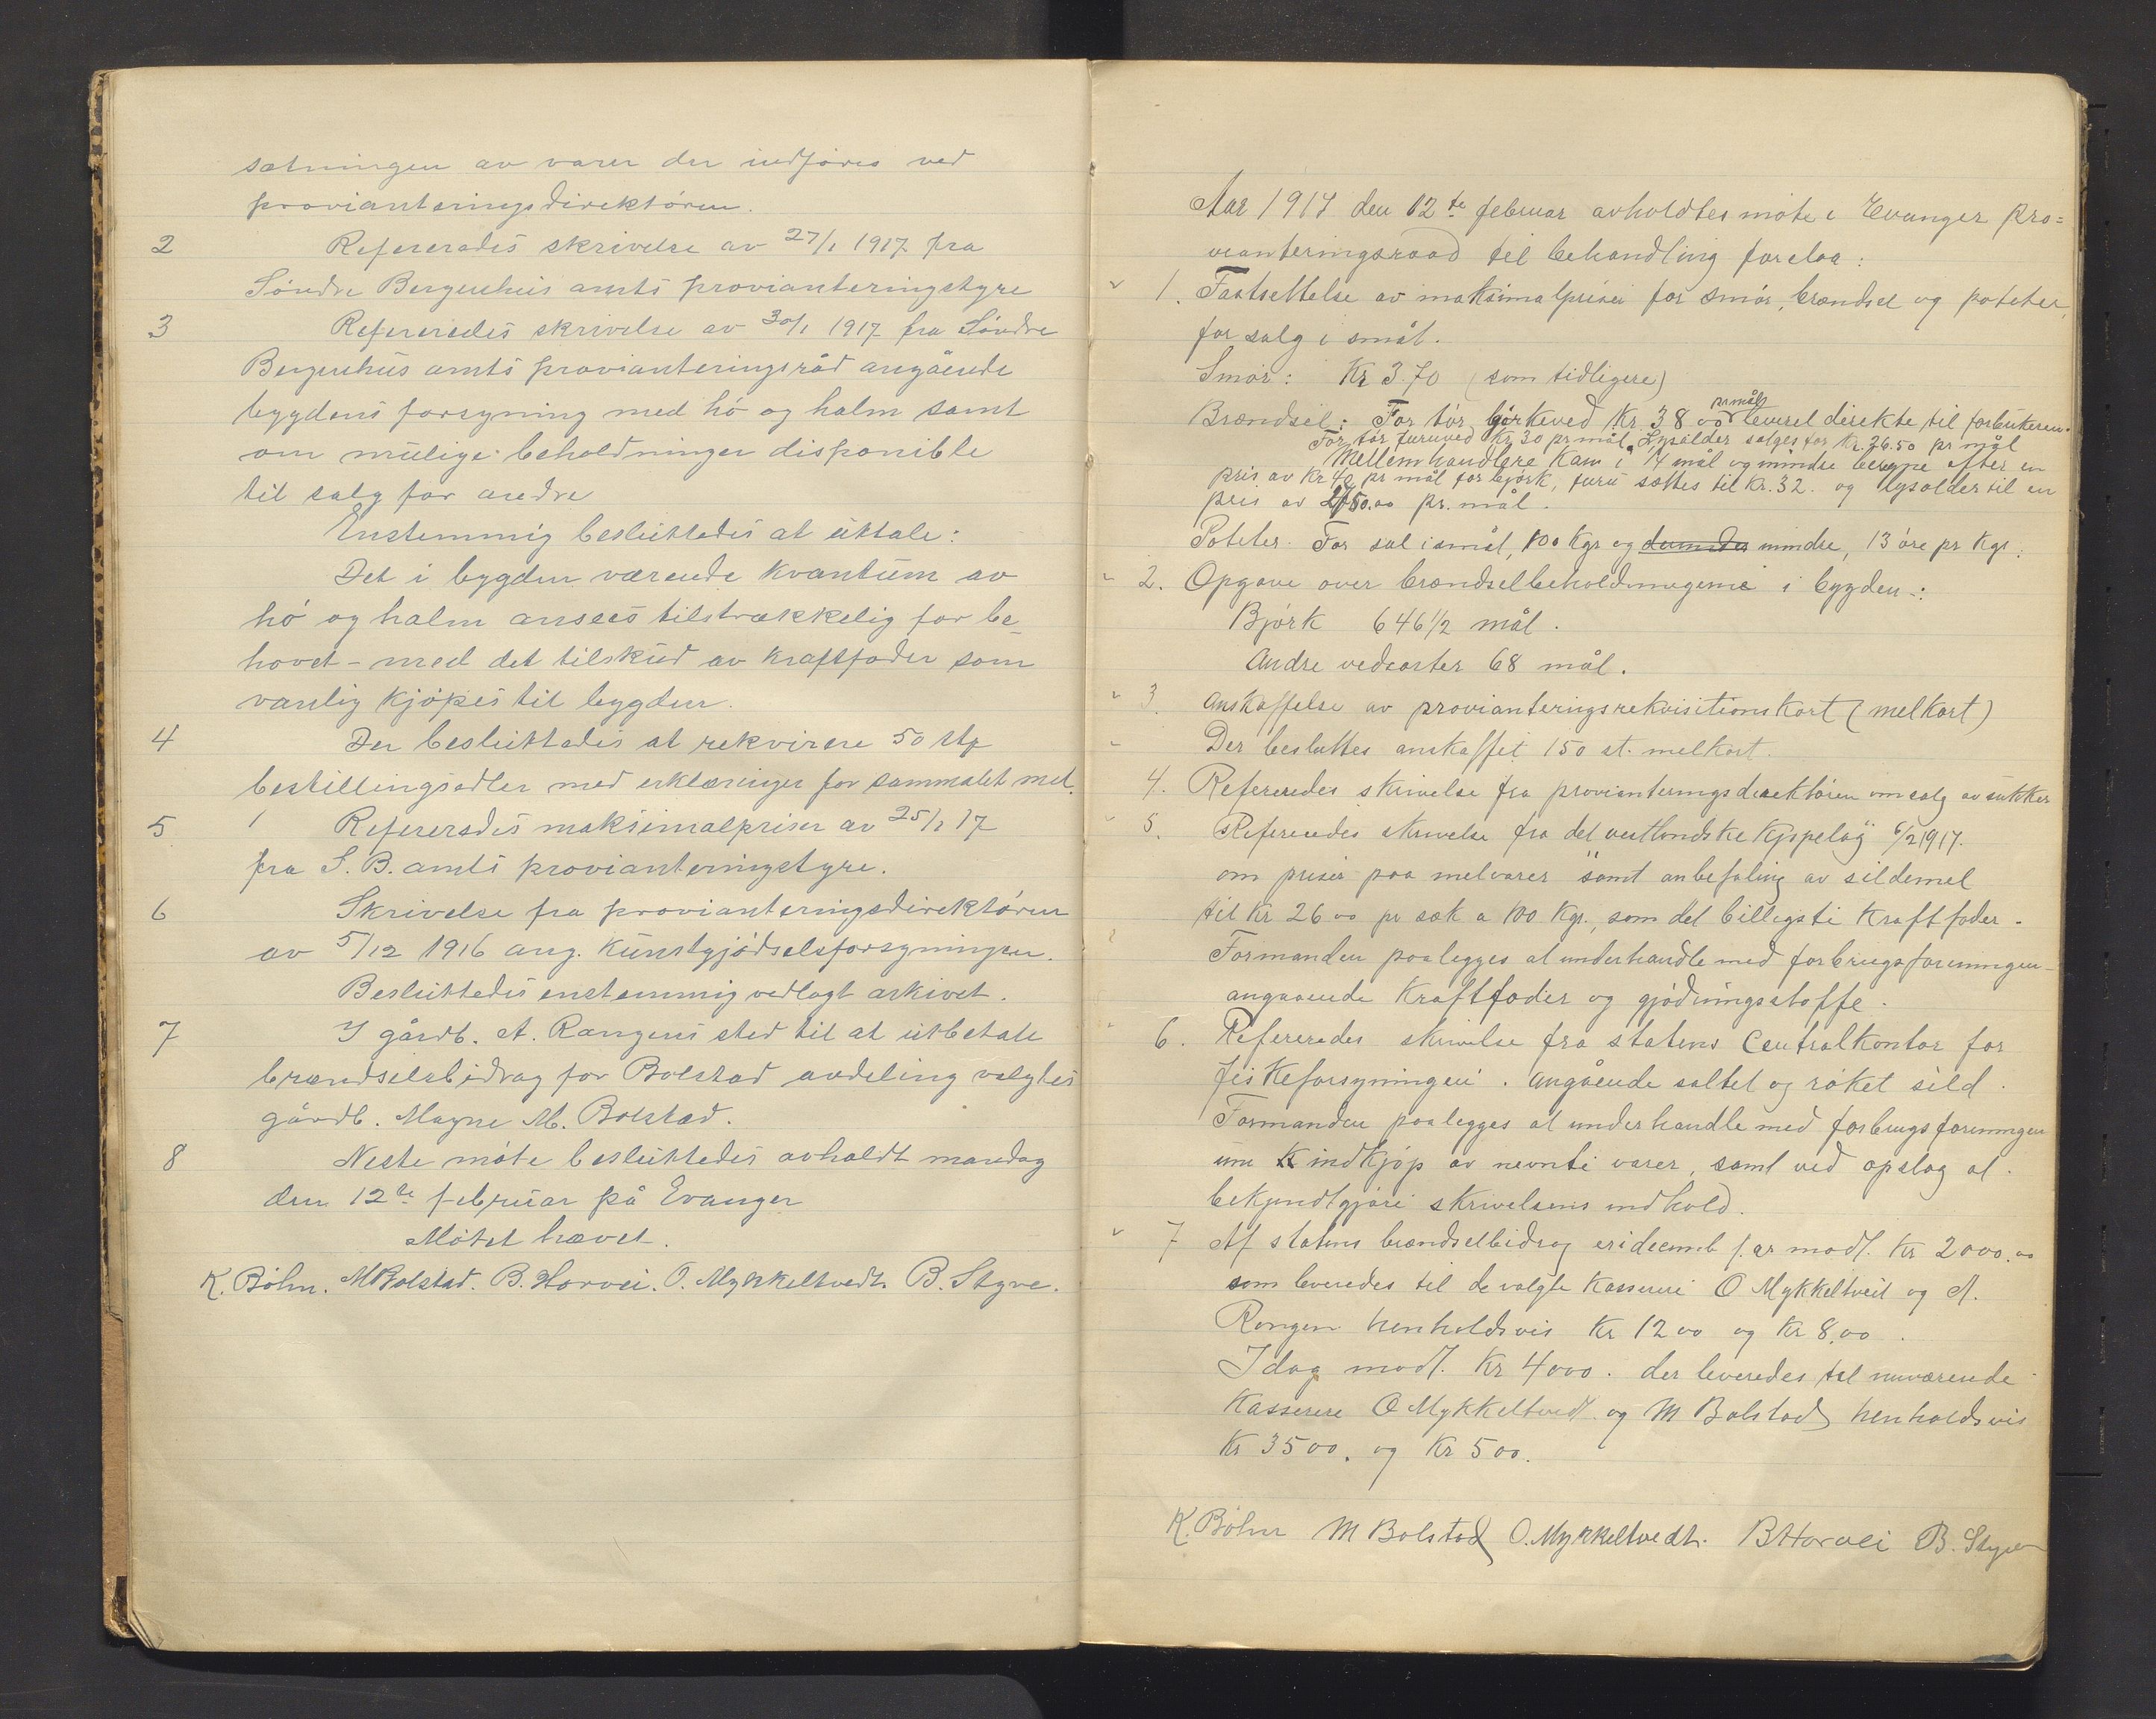 sætningen av varer der indføres ved
provianteringsdirektøren.
2 Refereredes skrivelse av 27/1 1917 fra
Søndre Bergenhus amts provianteringstyre
3 Refereredes skrivelse av 30/1 1917 fra Søndre
Bergenhus amts provianteringsråd angående
bygdens forsyning med hø og halm samt
om mulige beholdninger disponible
til salg for andre
Enstemmig besluttedes at uttale:
Det i bygden værende kvantum av
hø og halm ansees tilstrækkelig for be-
hovet - med det tilskud av kraftfoder som
vanlig kjøpes til bygden.
4 Der besluttedes at rekvirere 50 stk
bestillingsedler med erklæringer for sammalet mel.
5 Refereredes maksimalpriser av 25/1 17
fra S. B. amts provianteringstyre.
6 Skrivelse fra provianteringsdirektøren
av 5/12 1916 ang. kunstgjødselsforsyningen.
Besluttedes enstemmig vedlagt arkivet.
7 I gårdb. A. Rangens sted til at utbetale
brændselsbidrag for Bolstad avdeling valgtes
gårdb. Magne M. Bolstad.
8 Neste møte besluttedes avholdt mandag
den 12te februar på Evanger
Møtet hævet.
K. Böhn. M Bolstad. B. Horvei. O. Mykkeltvedt. B. Styve.
Aar 1917 den 12te februar avholdtes møte i Evanger pro=
vianteringsraad til behandling forelaa:
1. Fastsettelse av maksimalpriser for smør, brændsel og poteter,
for salg i smått.
Smør: Kr 3.70 (som tidligere)
Brændsel: For tør bjørkeved Kr. 38 00 pr mål leveret direkte til forbrukeren.
For tør furuved Kr 30 pr mål. Lysalder sælges for Kr. 26.50 pr mål
Mellemhandlere kan i 1/4 mål og mindre beregne efter en
pris av Kr 40 pr mål for bjørk, furu sættes til Kr. 32. og lysolder til en
pris av pr. mål.
Poteter. For sal i smått, 100 kgr og derunder mindre, 13 øre pr kgr.
2. Opgave over brændselbeholdningerne i bygden:
Bjørk 646 1/2 mål.
Andre vedsorter 68 mål.
3. Anskaffelse av provianteringsrekvisitionskort (melkort)
Der besluttes anskaffet 150 st. melkort.
4. Refereredes skrivelse fra provianteringsdirektøren om salg av sukker
5. Refereredes skrivelse fra det vestlandske kjøpelag 6/2 1917.
om priser paa melvarer samt anbefaling av sildemel
til Kr 26 00 pr sæk a 100 Kgr., som det billigste kraftfoder.
Formanden paalegges at underhandle med forbrugsforeningen
angaaende kraftfoder og gjødningsstoffe.
6. Refereredes skrivelse fra statens Centralkontor for
fiskeforsyningen. angående saltet og røket sild.
Formanden paalegges at underhandle med forbrugsforeningen
um indkjøp av nevnte varer, samt ved opslag at
bekjendtgjøre skrivelsens indhold.
7 Af statens brændselbidrag er i decemb f. ar modt. Kr 2000.00
som leveredes til de valgte kasserere O Mykkeltveit og A.
Rongen henholdsvis Kr 1200 og Kr 8,00.
Idag modt. Kr 4000. der leveredes til nuværende
Kasserere O Mykkeltvedt og M Bolstad henholdsvis
Kr 3500. og Kr 500.
K. Böhn M Bolstad O. Mykkeltvedt. B Horvei B. Styve